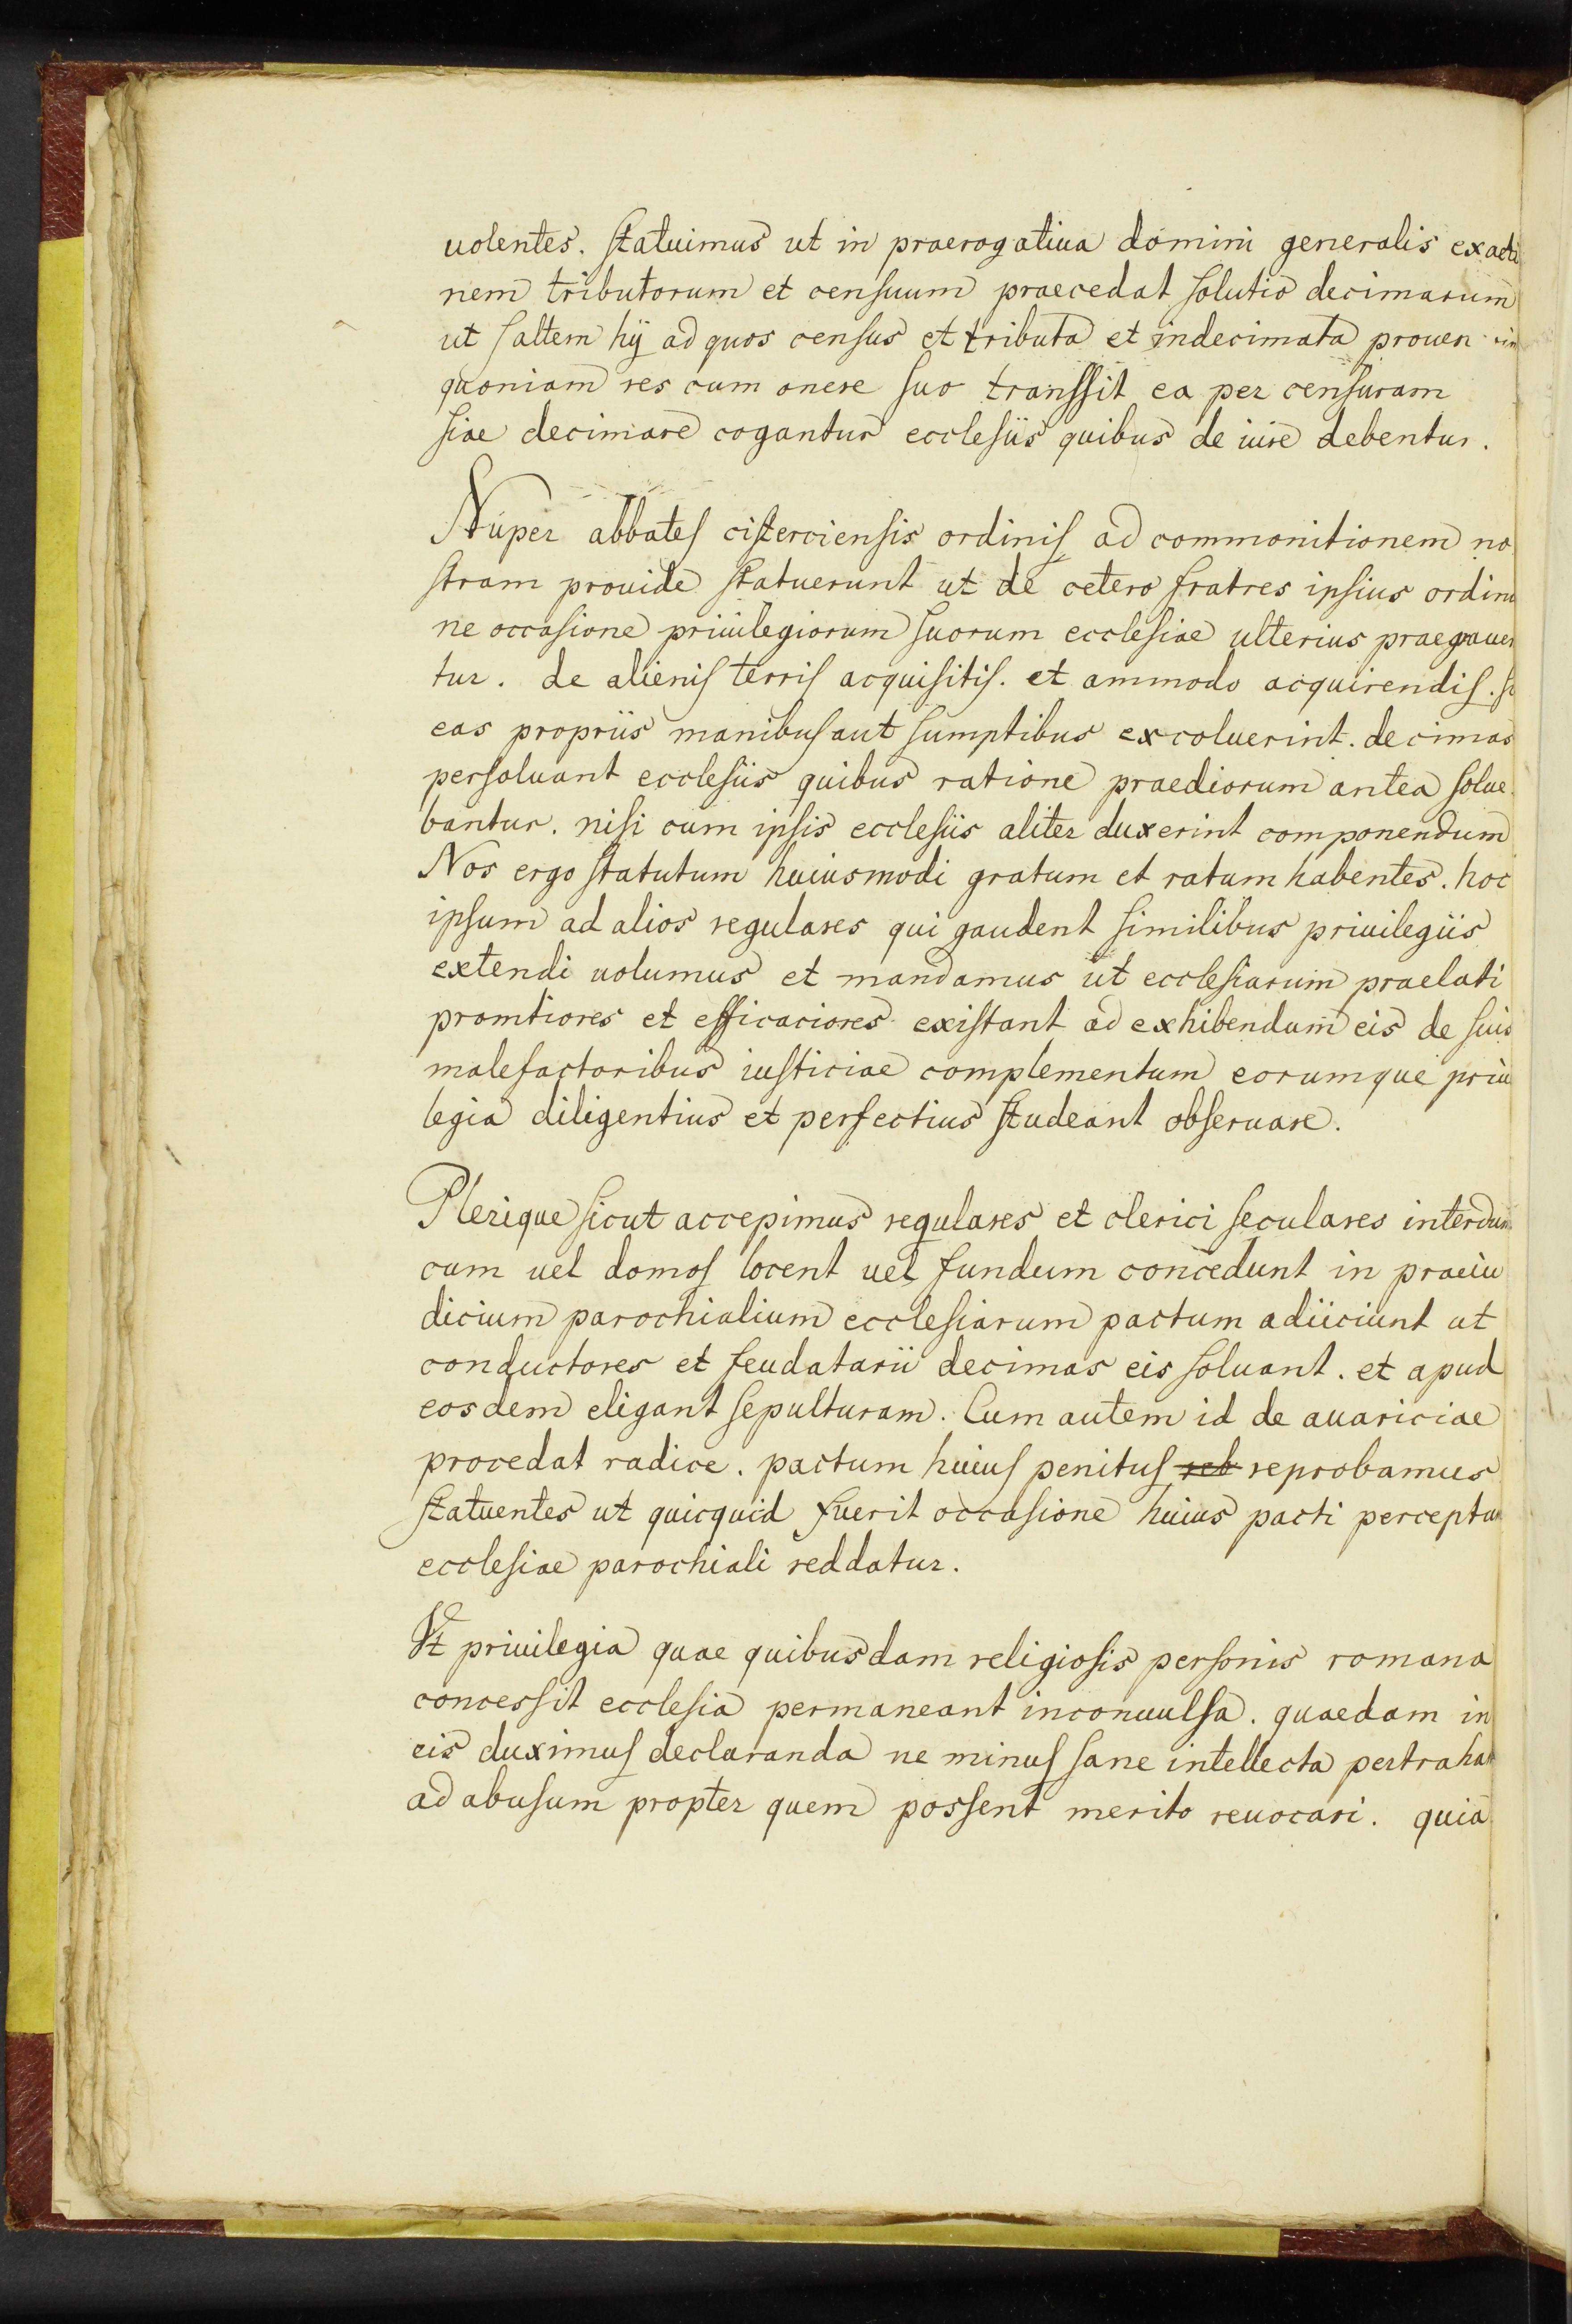 uolentes. statuimus ut in praerogatiua domini generalis exacti
nem tributorum et censuum praecedat solutio decimarum
ut saltem hij ad quos census et tributa et indecimata prouen
quoniam res cum onere suo transsit ea per censuram
siae decimare cogantur ecclesiis quibus de iure debentur.
Nuper abbates cisterciensis ordinis ad commonitionem no
stram prouide statuerunt ut de cetero fratres ipsius ordini
ne occasione priuilegiorum suorum ecclesiae ulterius praegrauen
tur. de alienis terris acquisitis. et ammodo acquirendis. si
eas propriis manibus aut sumptibus excoluerint. decimas
persoluant ecclesiis quibus ratione praediorum antea solue
bantur. nisi cum ipsis ecclesiis aliter duxerint componendum
Nos ergo statutum huiusmodi gratum et ratum habentes. hoc
ipsum ad alios regulares qui gaudent similibus priuilegiis
extendi uolumus et mandamus ut ecclesiarum praelati
promtiores et efficaciores existant ad exhibendum eis de suis
malefactoribus iusticiae complementum eorumque priui
legia diligentius et perfectius studeant obseruare.
Plerique sicut accepimus regulares et clerici seculares interdum
cum uel domos locent uel fundum concedunt in praeiu
dicium parochialium ecclesiarum pactum adiiciunt ut
conductores et feudatarii decimas eis soluant. et apud
eosdem eligant sepulturam. Cum autem id de auariciae
procedat radice. pactum huius penitus reb reprobamus
statuentes ut quicquid fuerit occasione huius pacti perceptum
ecclesiae parochiali reddatur.
Vt priuilegia quae quibusdam religiosis personis romana
concessit ecclesia permaneant inconuulsa. quaedam in
eis duximus declaranda ne minus sane intellecta pertrahan
ad abusum propter quem possent merito reuocari. quia